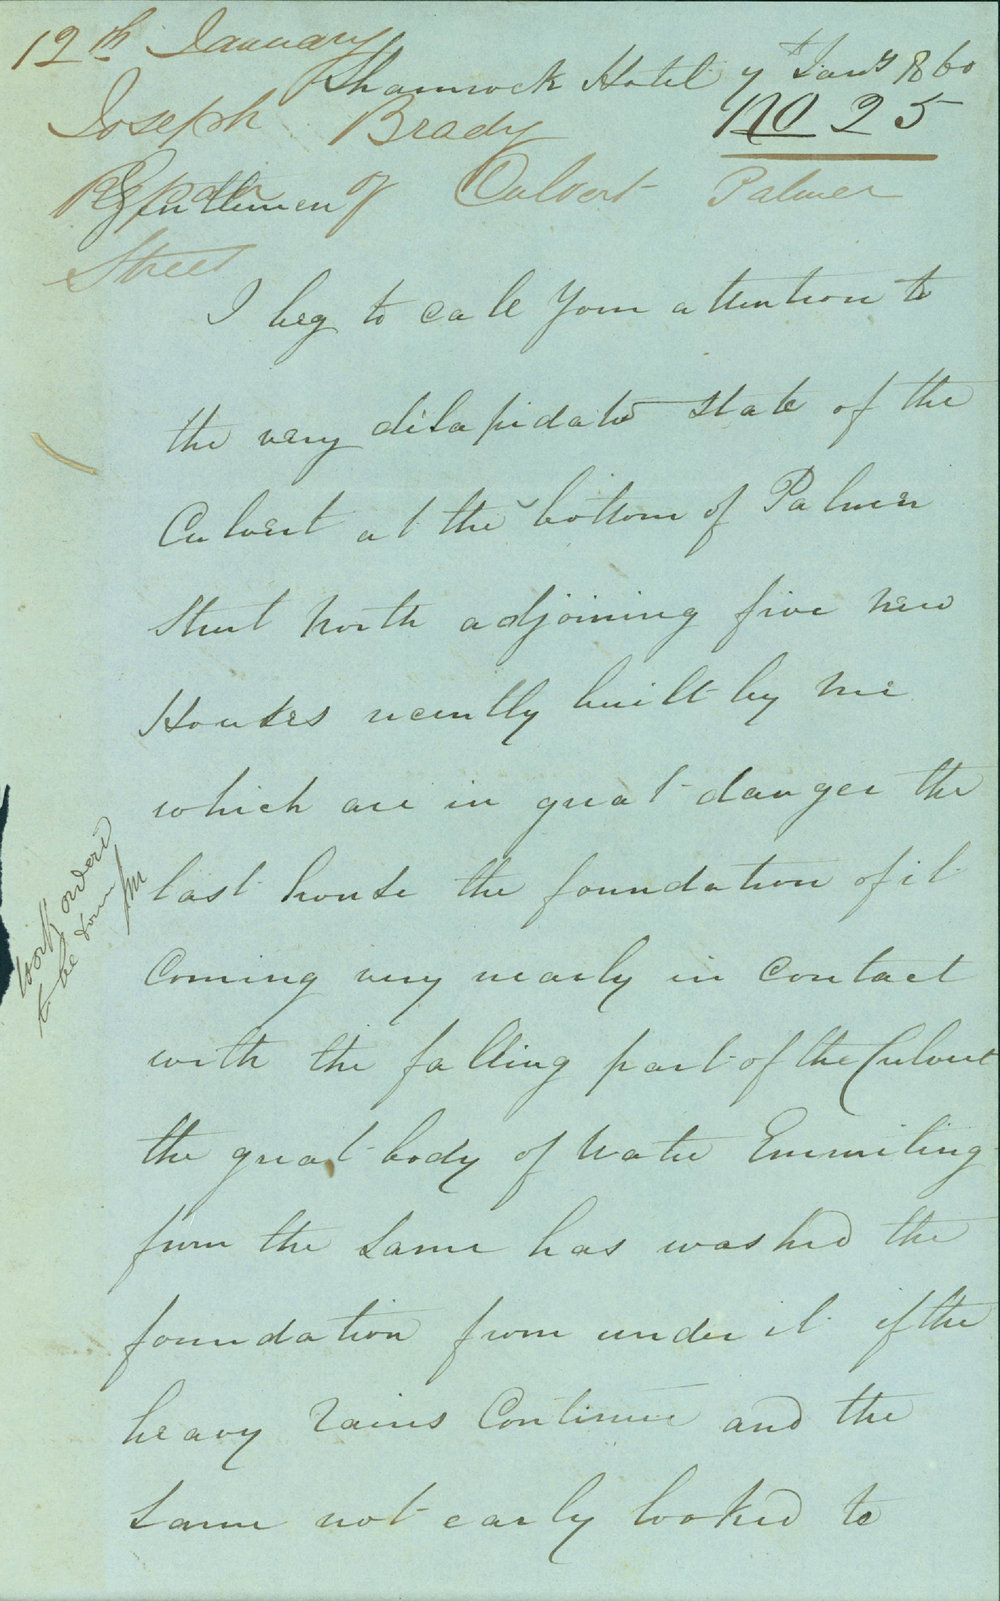 12th January
Shamrock Hotel 7th Jany 1860
Joseph Brady
No 25
Repair of Culvert Palmer
Gentlemen
Street
I beg to call your attention to
the very dilapidated state of the
Culvert at the bottom of Palmer
Street North adjoining five new
Houses recently built by me
which are in great danger the
last house the foundation of it
Coming very nearly in Contact
with the falling part of the Culvert
the great body of Water Emmiting
from the same has washed the
foundation from under it if the
heavy rains Continue and the
same not early looked to
Work ordered
to be done